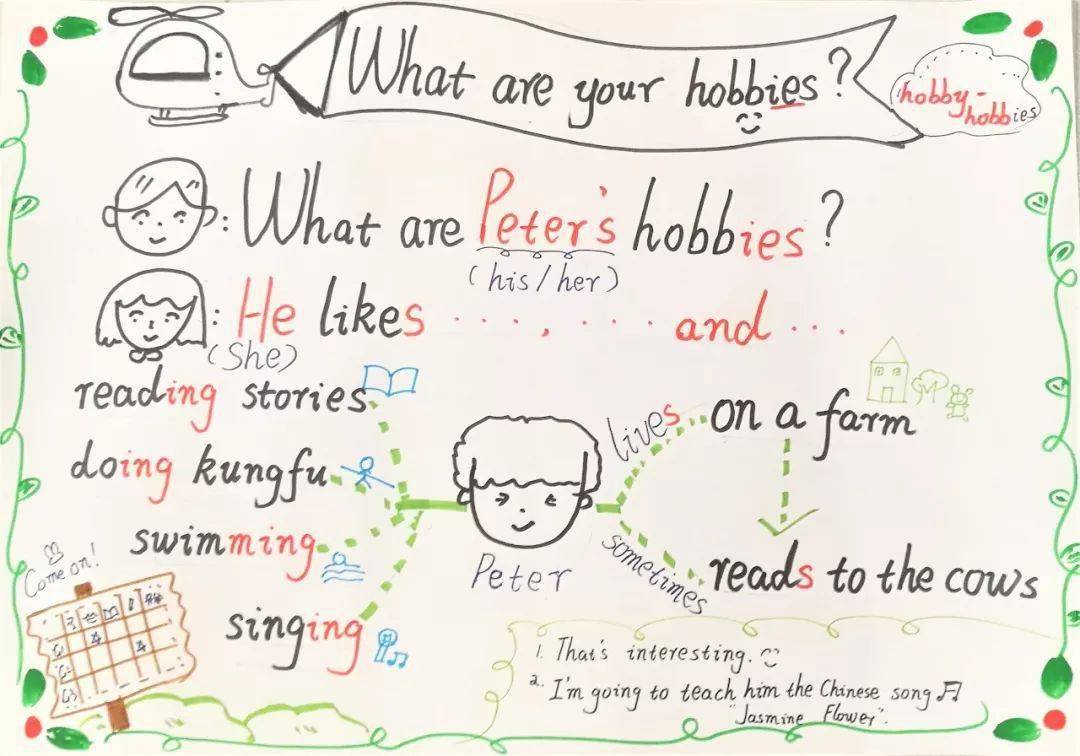 What are your hobbies?
hobby-
hobbies
: What are Peter's hobbies?
(his/her)
: He likes ...., ... and ...
(She)
reading stories
doing kungfu
swimming
singing
Peter
lives
on a farm
sometimes
reads to the cows
Come on!
1. That's interesting.
2. I'm going to teach him the Chinese song
"Jasmine Flower".